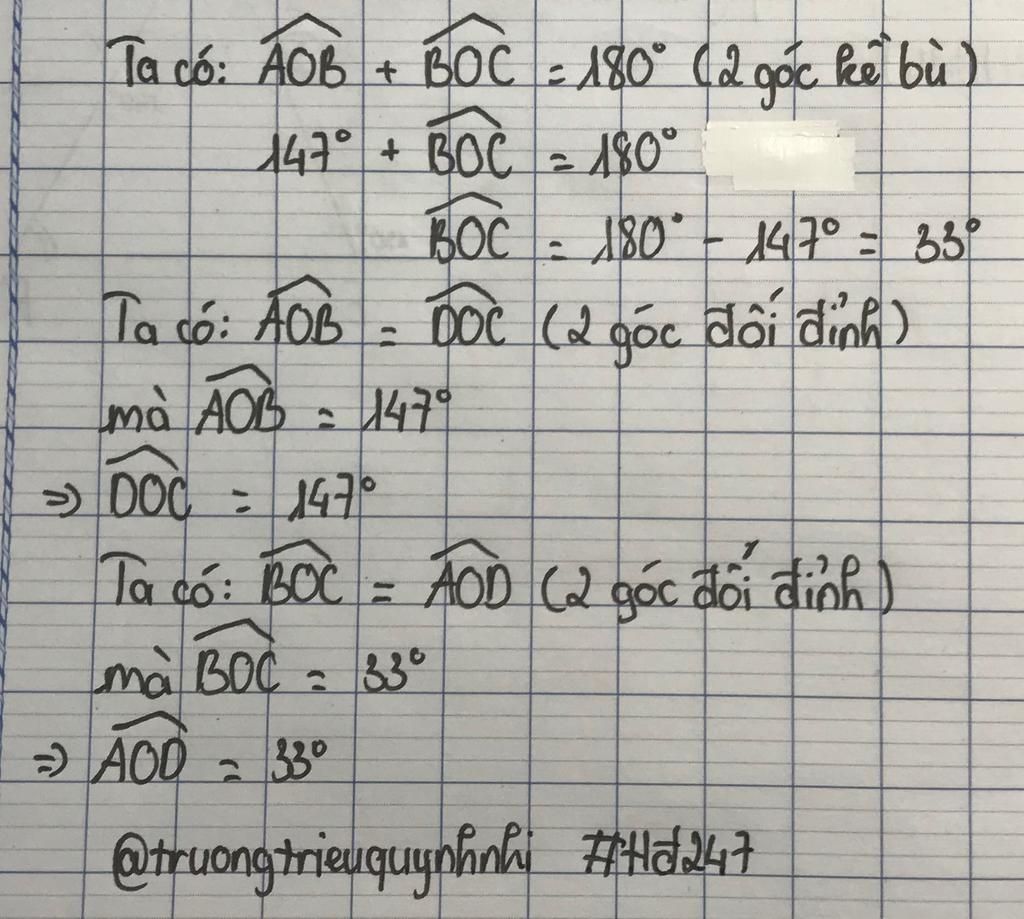 Ta có: AOB + BOC = 180° (2 góc kề bù)
147° + BOC = 180°
BOC = 180° - 147° = 33°
Ta có: AOB = DOC (2 góc đối đỉnh)
mà AOB = 147°
=> DOC = 147°
Ta có: BOC = AOD (2 góc đối đỉnh)
mà BOC = 33°
=> AOD = 33°
@truongtrieuquynhnhi #Hđ247